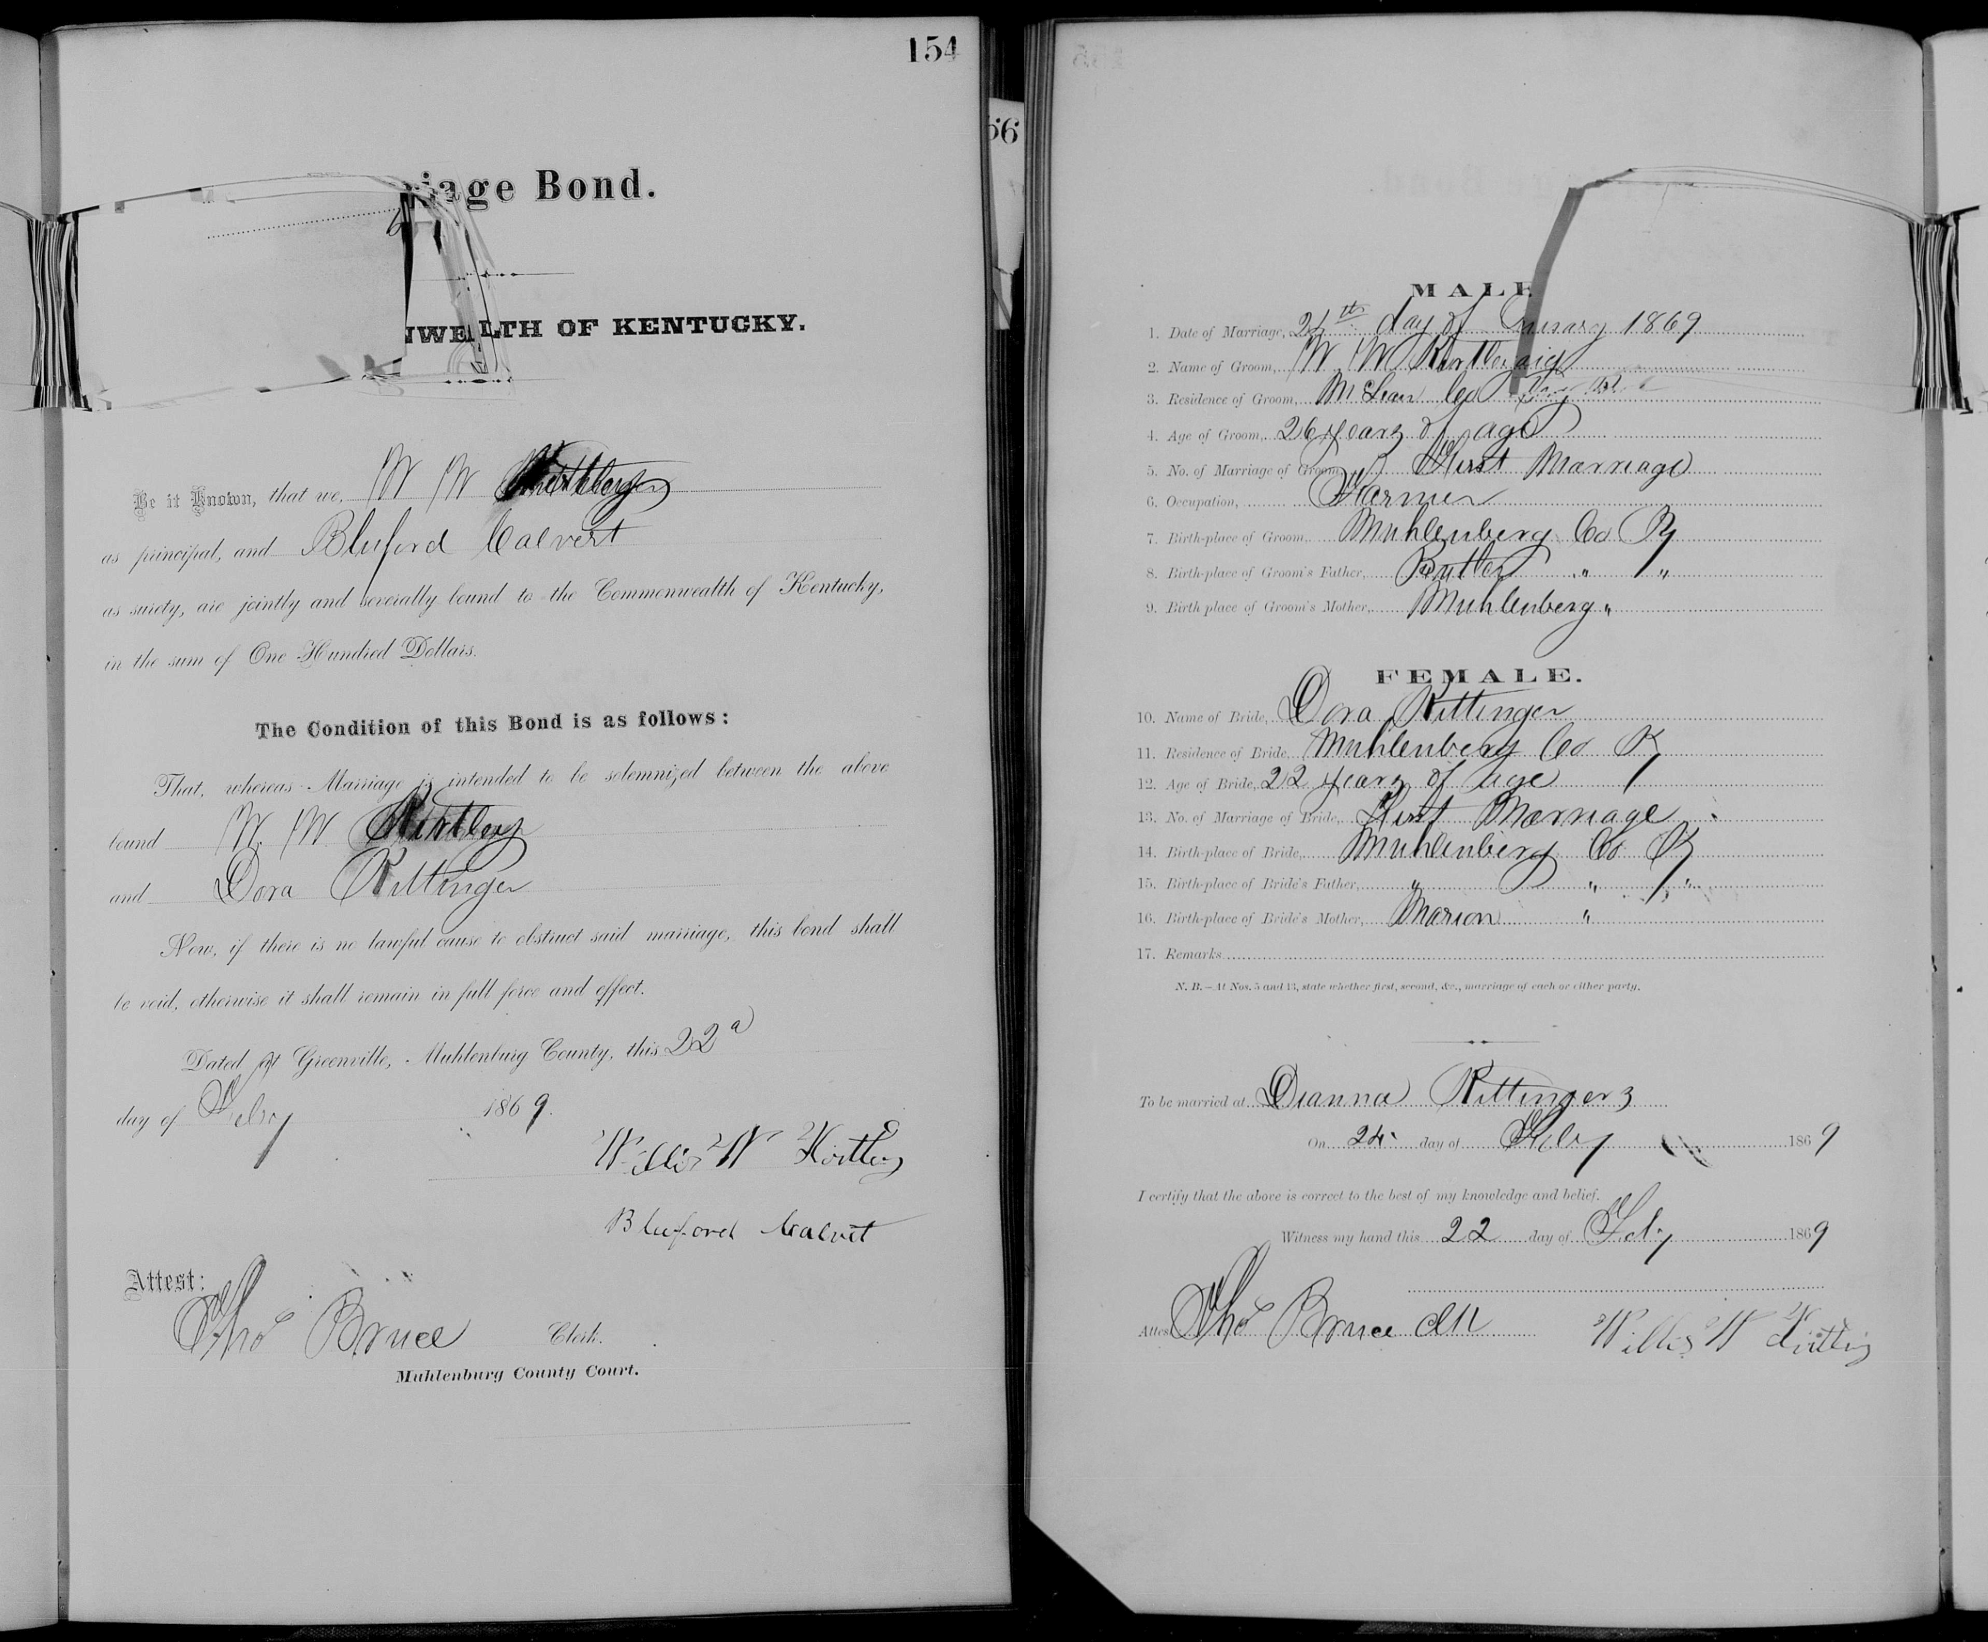 154
riage Bond.
NWEALTH OF KENTUCKY.
Be it Known, that we, W W Kirtley
as principal, and Bluford Calvert
as surety, are jointly and severally bound to the Commonwealth of Kentucky,
in the sum of One Hundred Dollars.
The Condition of this Bond is as follows:
That, whereas Marriage is intended to be solemnized between the above
bound W. W Kirtley
and Dora Kittinger
Now, if there is no lawful cause to obstruct said marriage, this bond shall
be void, otherwise it shall remain in full force and effect.
Dated at Greenville, Muhlenburg County, this 22d
day of Feby 1869.
Willis W Kirtley
Bluford Calvert
Attest:
Tho Bruce Clerk.
Muhlenburg County Court.
56
MALE
1. Date of Marriage, 24th day of 1869
2. Name of Groom, W. W Kirtley
3. Residence of Groom, McLean Co
4. Age of Groom, 26 years of age
5. No. of Marriage of Groom, First Marriage
6. Occupation, Farmer
7. Birth-place of Groom, Muhlenberg Co Ky
8. Birth-place of Groom's Father, Butler " "
9. Birth place of Groom's Mother, Muhlenberg "
FEMALE.
10. Name of Bride, Dora Kittinger
11. Residence of Bride, Muhlenberg Co Ky
12. Age of Bride, 22 years of age
13. No. of Marriage of Bride, First Marriage
14. Birth-place of Bride, Muhlenberg Co Ky
15. Birth-place of Bride's Father, " " "
16. Birth-place of Bride's Mother, Marion "
17. Remarks
N. B.—At Nos. 5 and 13, state whether first, second, &c., marriage of each or either party.
To be married at Dianna Kittingers
On 24 day of Feby 1869
I certify that the above is correct to the best of my knowledge and belief.
Witness my hand this 22 day of Feby 1869
Attest Tho Bruce Clk Willis W Kirtley